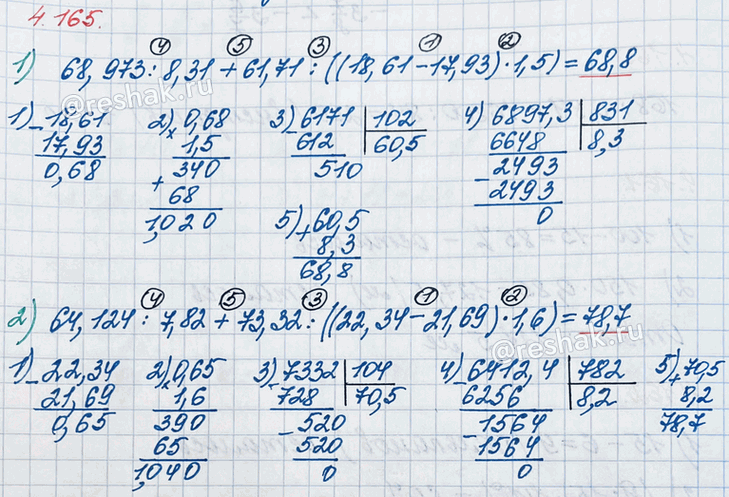 4.165.
④ ⑤ ③ ① ②
1) 68,973 : 8,31 + 61,71 : ((18,61 - 17,93) · 1,5) = 68,8
©reshak.ru
1) 18,61 2) 0,68 3) 6171 | 102 4) 6897,3 | 831
- 17,93 × 1,5 - 612 | 60,5 - 6648 | 8,3
0,68 340 510 - 2493
+ 68 2493
1,020 5) 60,5 0
+ 8,3
68,8
④ ⑤ ③ ① ②
2) 64,124 : 7,82 + 73,32 : ((22,34 - 21,69) · 1,6) = 78,7
©reshak.ru
1) 22,34 2) 0,65 3) 7332 | 104 4) 6412,4 | 782 5) 70,5
- 21,69 × 1,6 - 728 | 70,5 - 6256 | 8,2 + 8,2
0,65 390 - 520 1564 78,7
65 520 - 1564
1,040 0 0